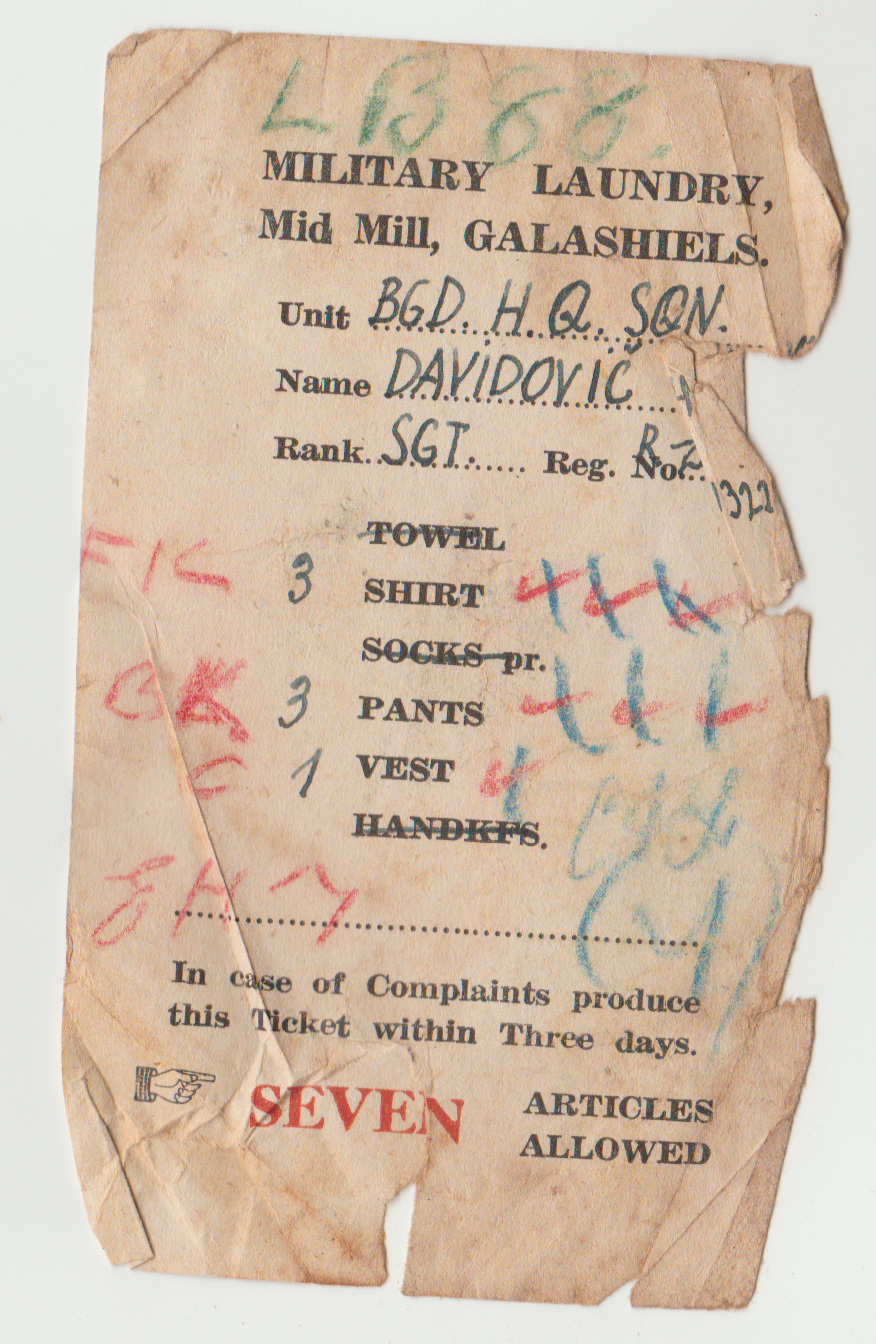 LB 88.
MILITARY LAUNDRY,
Mid Mill, GALASHIELS.
Unit BGD. H. Q. SQN.
Name DAVIDOVIČ
Rank SGT. Reg. No. RZ
1322
TOWEL
3 SHIRT
SOCKS pr.
3 PANTS
1 VEST
HANDKFS.
In case of Complaints produce
this Ticket within Three days.
SEVEN ARTICLES
ALLOWED